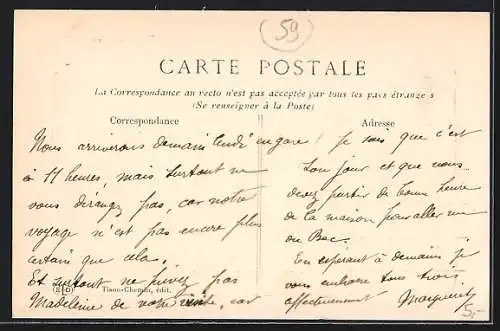 59
CARTE POSTALE
La Correspondance au recto n'est pas acceptée par tous les pays étrangers
(Se renseigner à la Poste)
Correspondance
Adresse
Nous arriverons demain lundi en gare
à 11 heures, mais surtout ne
vous dérangez pas, car notre
voyage n'est pas encore plus
certain que cela.
Et surtout ne privez pas
Madeleine de votre visite, car
je sais que c'est
son jour et que vous
devez partir de bonne heure
de la maison pour aller
au Bec.
En espérant à demain je
vous embrasse tous trois
affectueusement Marguerite
édit.
5,-